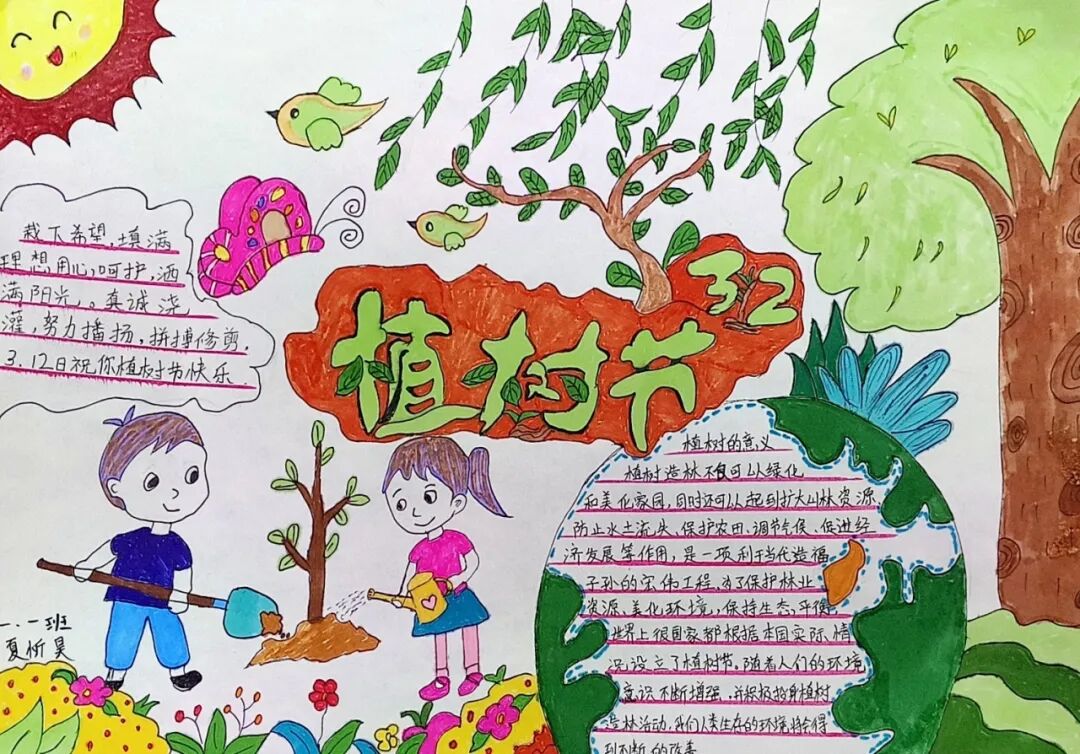 栽下希望,填满
理想,用心,呵护,洒
满阳光,。真诚浇
灌,努力播扬,拼搏修剪.
3.12日祝你植树节快乐
植树节
3.12
一.一班
夏忻昊
植树的意义
植树造林不仅可以绿化
和美化家园,同时还可以起到扩大山林资源、
防止水土流失、保护农田、调节气候、促进经
济发展等作用,是一项利于当代造福
子孙的宏伟工程.为了保护林业
资源、美化环境,保持生态,平衡
世界上很国家都根据本国实际,情
况,设立了植树节。随着人们的环境
意识不断增强,并积极投身植树
造林活动,我们人类生存的环境将会得
到不断的改善